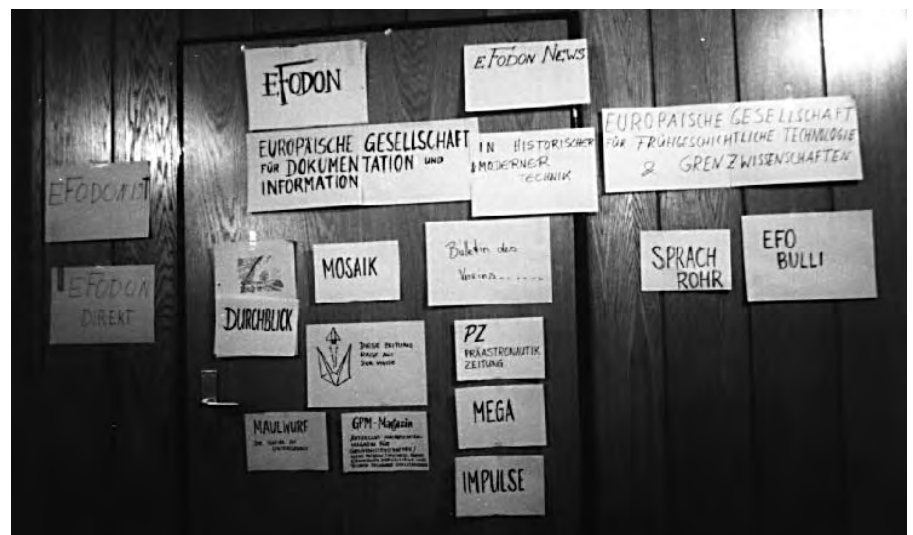 EFODON
EFODON NEWS
EUROPÄISCHE GESELLSCHAFT
FÜR DOKUMENTATION UND
INFORMATION
IN HISTORISCHER
& MODERNER
TECHNIK
EUROPÄISCHE GESELLSCHAFT
FÜR FRÜHGESCHICHTLICHE TECHNOLOGIE
& GRENZWISSENSCHAFTEN
EFODON
DIREKT
DURCHBLICK
MOSAIK
Bulletin des
Vereins......
SPRACH
ROHR
EFO
BULLI
DIESE ZEITUNG
PZ
PRÄASTRONAUTIK
ZEITUNG
MEGA
IMPULSE
MAULWURF
GPM-Magazin